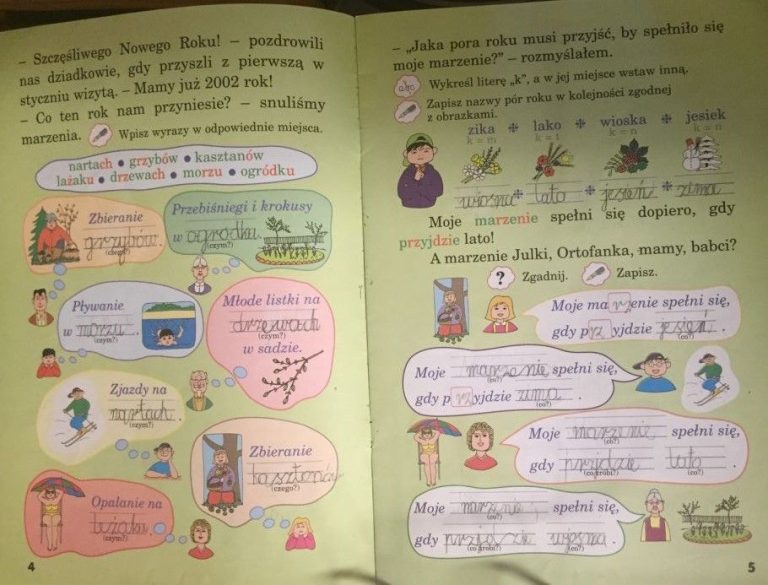 – Szczęśliwego Nowego Roku! – pozdrowili
nas dziadkowie, gdy przyszli z pierwszą w
styczniu wizytą. – Mamy już 2002 rok!
– Co ten rok nam przyniesie? – snuliśmy
marzenia. Wpisz wyrazy w odpowiednie miejsca.
nartach • grzybów • kasztanów
lażaku • drzewach • morzu • ogródku
Zbieranie
grzybów.
(czego?)
Przebiśniegi i krokusy
w ogródku.
(czym?)
Pływanie
w morzu.
(czym?)
Młode listki na
drzewach
(czym?)
w sadzie.
Zjazdy na
nartach.
(czym?)
Zbieranie
kasztanów
(czego?)
Opalanie na
leżaku.
(czym?)
4
– „Jaka pora roku musi przyjść, by spełniło się
moje marzenie?” – rozmyślałem.
abc Wykreśl literę „k”, a w jej miejsce wstaw inną.
Zapisz nazwy pór roku w kolejności zgodnej
z obrazkami.
zika lako wioska jesiek
k = m k = t k = n k = n
wiosna lato jesień zima
Moje marzenie spełni się dopiero, gdy
przyjdzie lato!
A marzenie Julki, Ortofanka, mamy, babci?
? Zgadnij. Zapisz.
Moje marzenie spełni się,
gdy przyjdzie jesień.
(co?)
Moje marzenie spełni się,
(co?)
gdy przyjdzie zima.
(co?)
Moje marzenie spełni się,
(co?)
gdy przyjdzie lato.
(co zrobi?) (co?)
Moje marzenie spełni się,
(co?)
gdy przyjdzie wiosna.
(co zrobi?) (co?)
5